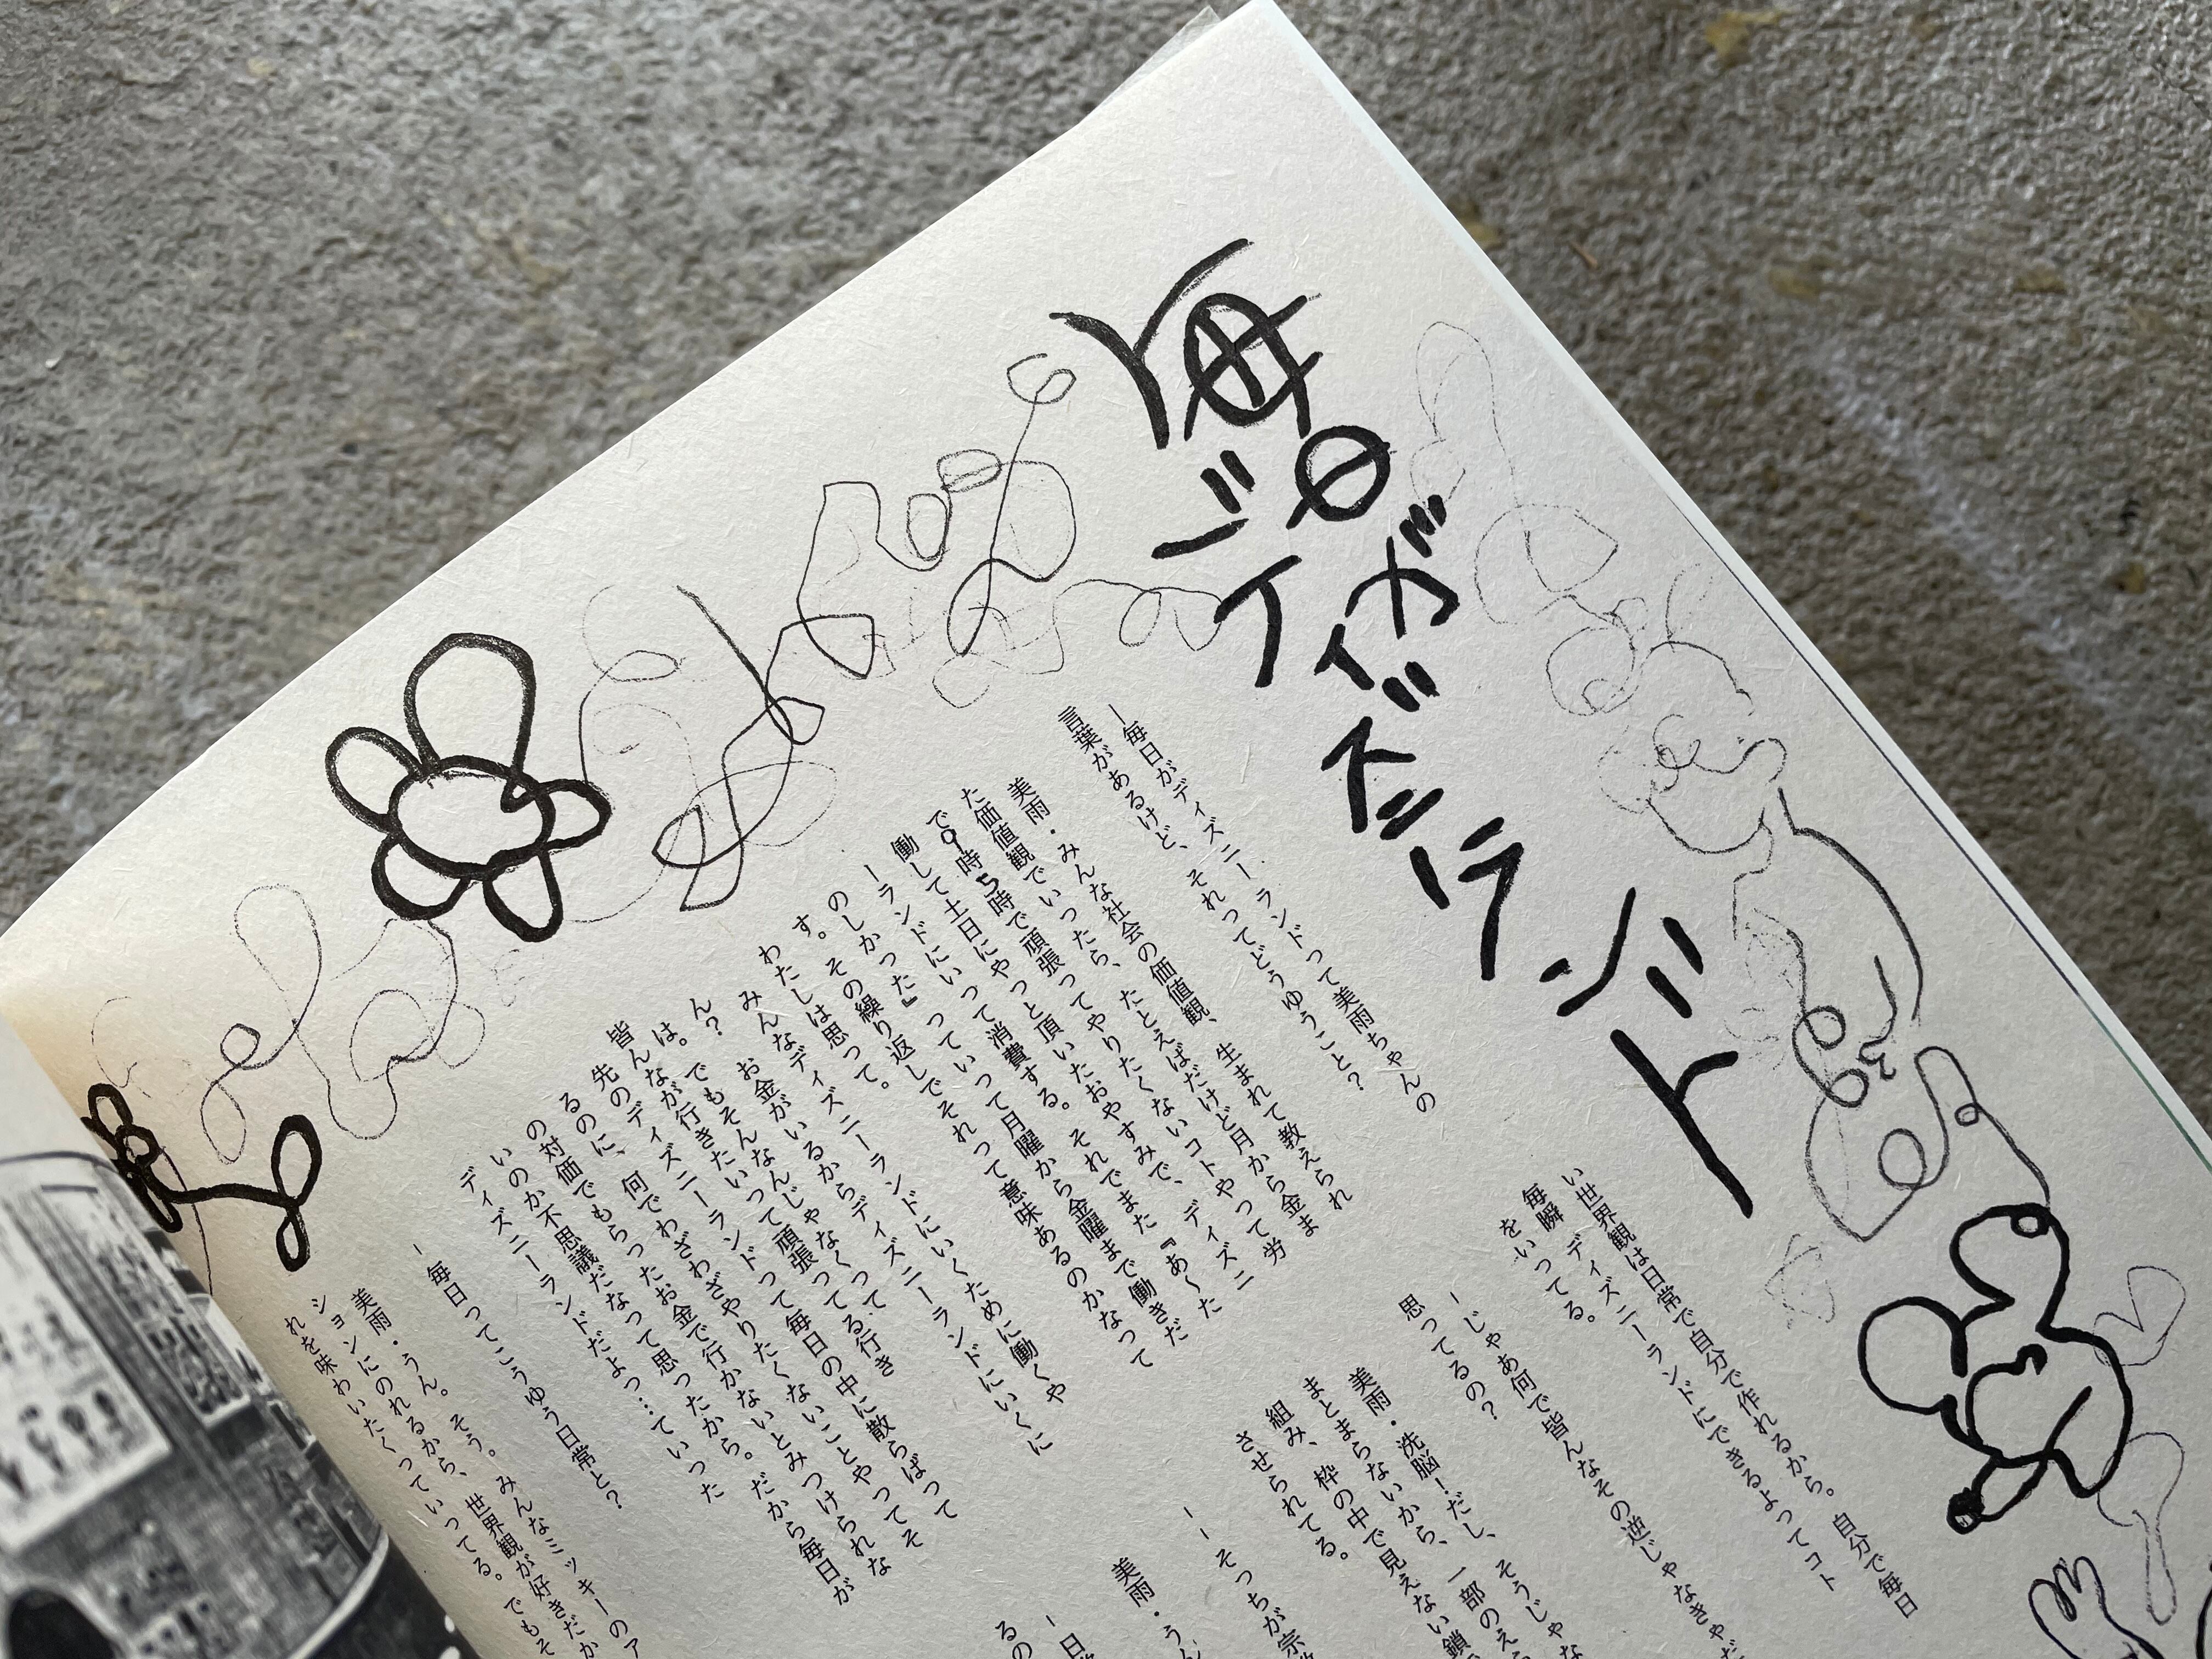 毎日が
ディズニーランド
―毎日がディズニーランドって美雨ちゃんの
言葉があるけど、それってどうゆうこと？
美雨・みんな社会の価値観、生まれて教えられ
た価値観でいったら、たとえばだけど月から金ま
で9時5時で頑張ってやりたくないコトやって労
働して土日にやっと頂いたおやすみで、ディズニ
ーランドにいって消費する。それでまた『あ〜た
のしかった』っていって月曜から金曜まで働きだ
す。その繰り返しでそれって意味あるのかなって
わたしは思って。
みんなディズニーランドにいくために働くや
ん？お金がいるからディズニーランドにいくに
は。でもそんなんじゃなくって、行き
皆んなが行きたいって頑張ってる
先のディズニーランドって毎日の中に散らばって
るのに、何でわざわざやりたくないことやってそ
の対価でもらったお金で行かないとみつけられな
いのか不思議だなって思ったから。だから毎日が
ディズニーランドだよっ…ていった
―毎日ってこうゆう日常と？
美雨・うん。そう。みんなミッキーのア
ションにのれるから、世界観が好きだか
れを味わいたくっていってる。でもそ
い世界観は日常で自分で作れるから。自分で毎日
毎瞬ディズニーランドにできるよってコト
をいってる。
―じゃあ何で皆んなその逆じゃなきゃだ
思ってるの？
美雨・洗脳！だし、そうじゃな
まとまらないから、一部のえ
組み、枠の中で見えない鎖
させられてる。
――そっちが宗
美雨・うん
―日
るの